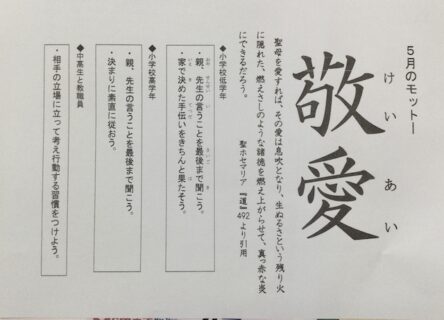 5月のモットー
けいあい
敬愛
聖母を愛すれば、その愛は息吹となり、生ぬるさという残り火
に隠れた、燃えさしのような諸徳を燃え上がらせて、真っ赤な炎
にできるだろう。
聖ホセマリア『道』492より引用
◆小学校低学年
・親、先生の言うことを最後まで聞こう。
・家で決めた手伝いをきちんと果たそう。
◆小学校高学年
・親、先生の言うことを最後まで聞こう。
・決まりに素直に従おう。
◆中高生と教職員
・相手の立場に立って考え行動する習慣をつけよう。